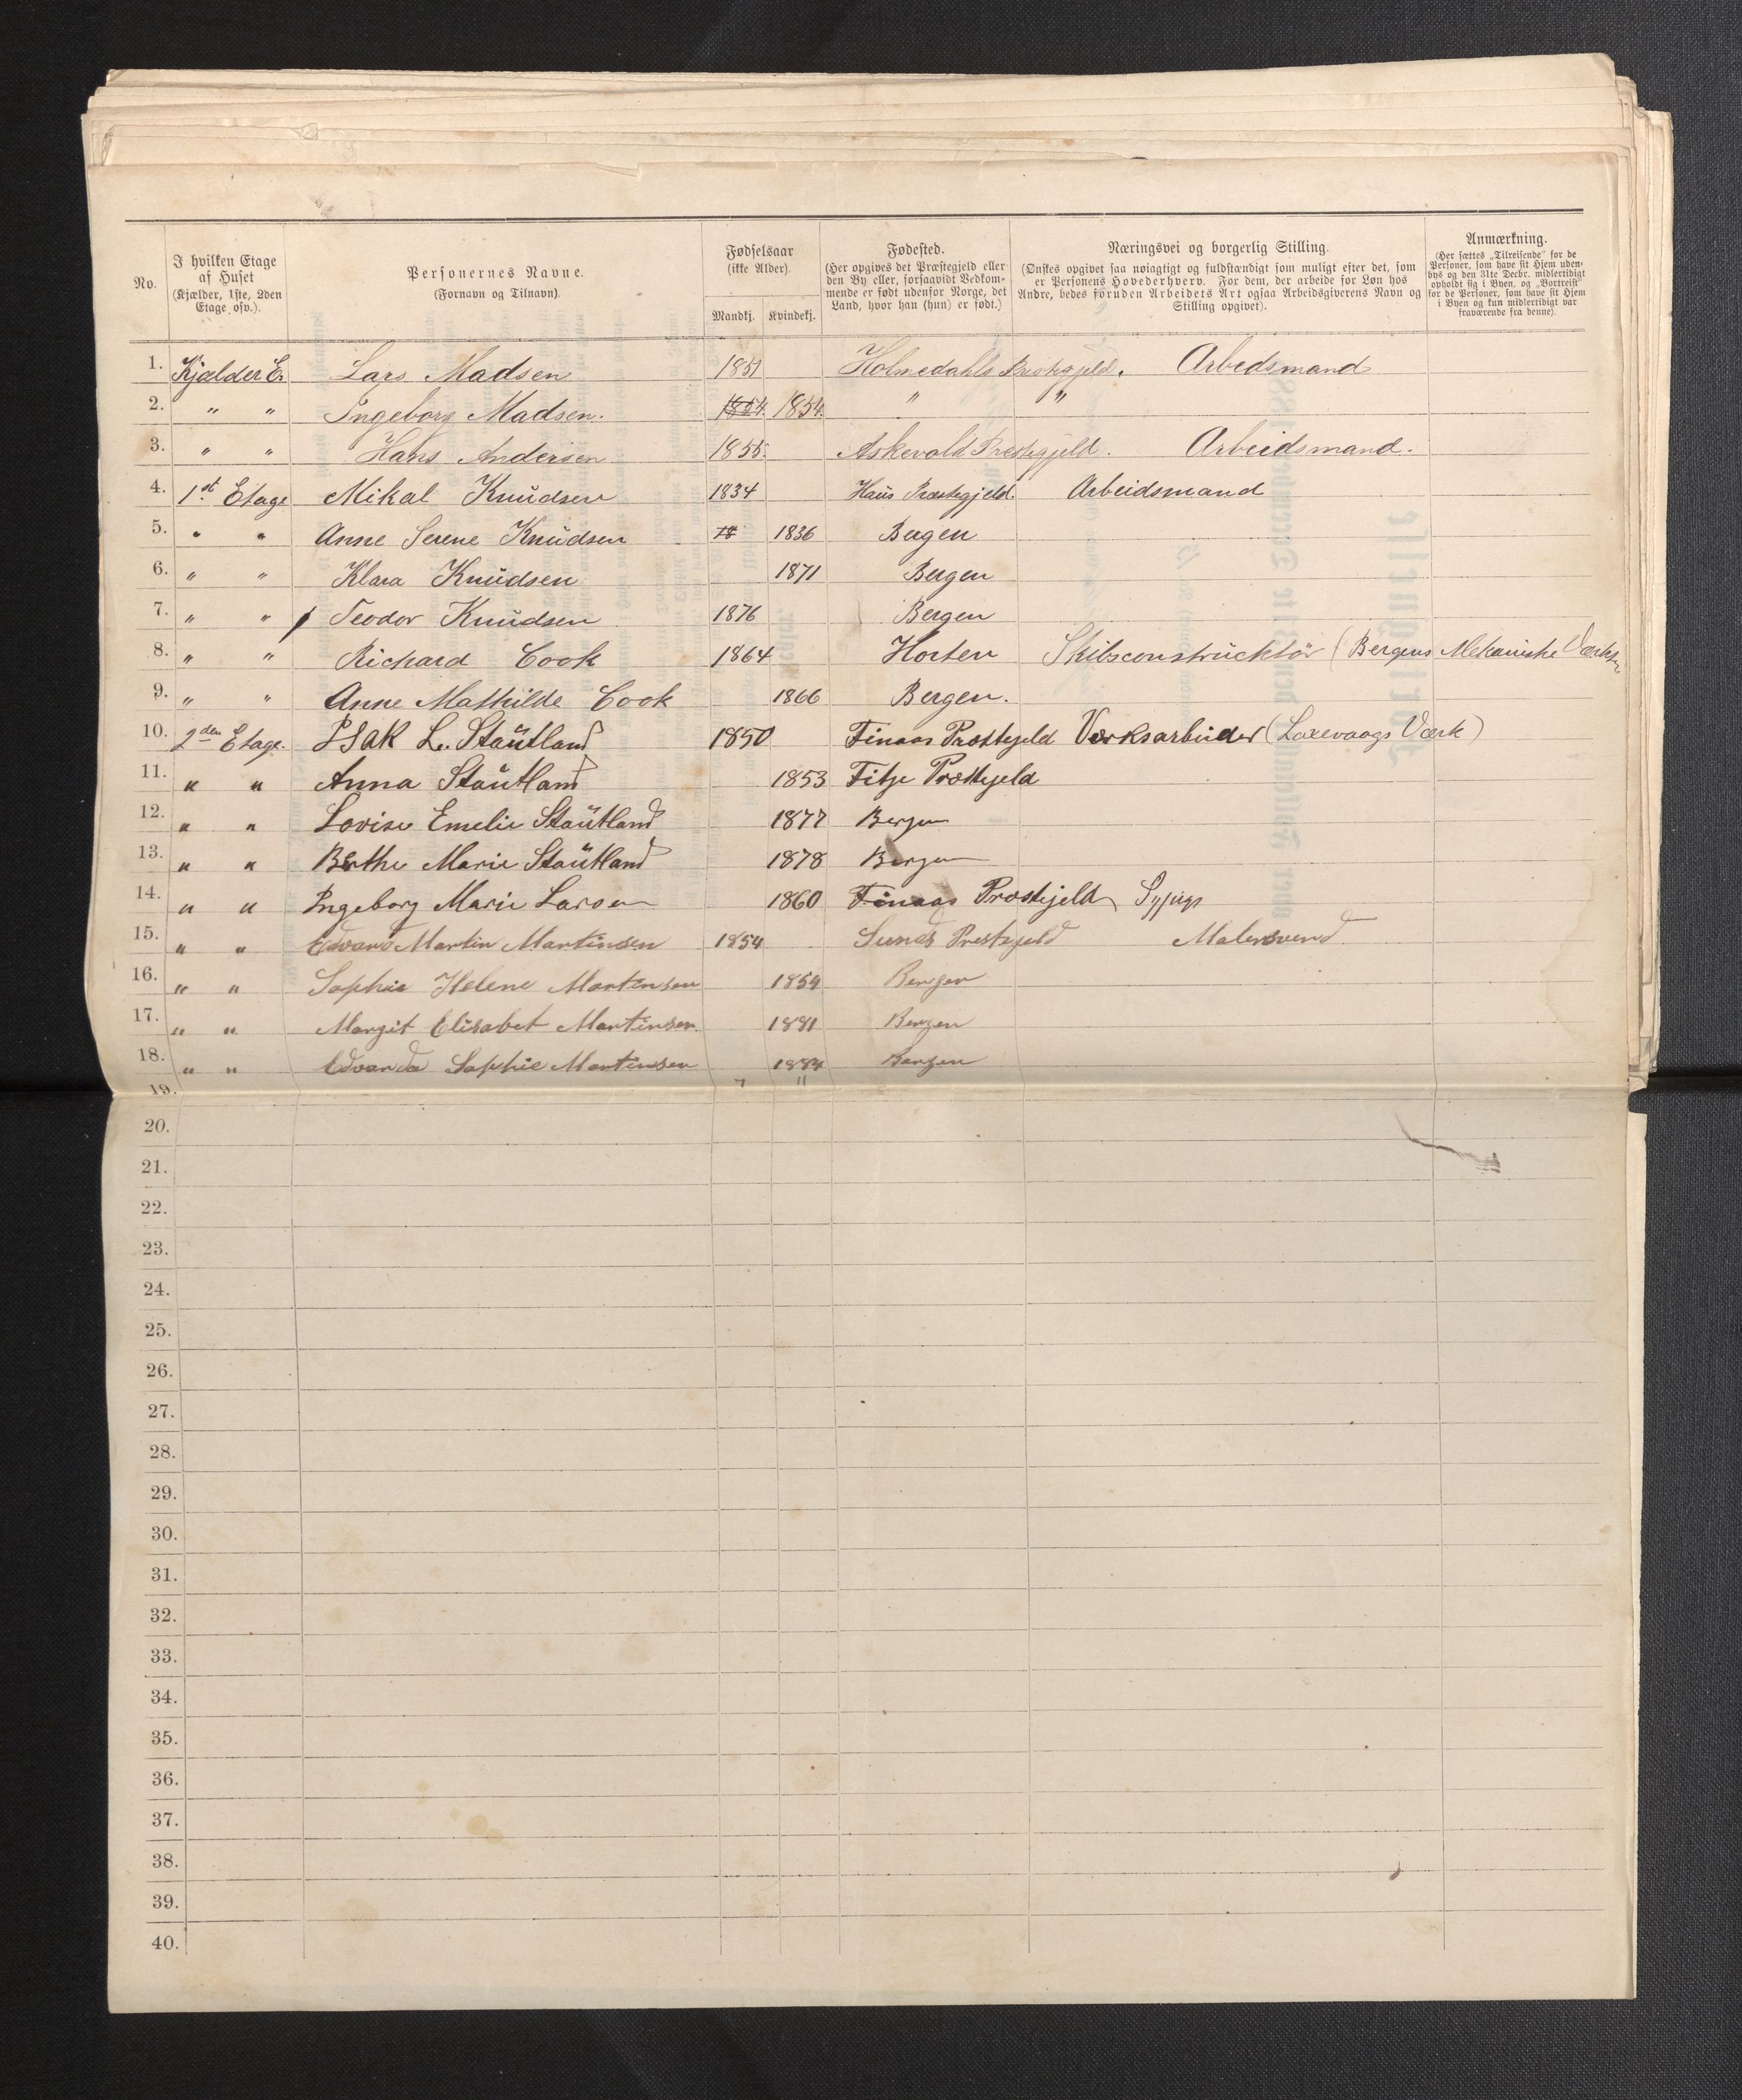 No.
I hvilken Etage
af Huset
(Kjælder, 1ste, 2den
Etage osv.).
Personernes Navne.
(Fornavn og Tilnavn).
Fødselsaar
(ikke Alder).
Mandkj. Kvindekj.
Fødested.
(Her opgives det Præstegjeld eller
den By eller, forsaavidt Vedkom-
mende er født udenfor Norge, det
Land, hvor han (hun) er født.)
Næringsvei og borgerlig Stilling.
(Ønskes opgivet saa nøiagtigt og fuldstændigt som muligt efter det, som
er Personens Hovederhverv. For dem, der arbeide for Løn hos
Andre, bedes foruden Arbeidets Art ogsaa Arbeidsgiverens Navn og
Stilling opgivet).
Anmærkning.
(Her sættes „Tilreisende" for de
Personer, som have sit Hjem uden-
bys og den 31te Decbr. midlertidigt
opholdt sig i Byen, og „Bortreist"
for de Personer, som have sit Hjem
i Byen og kun midlertidigt var
fraværende fra denne).
1. Kjælder E. Lars Madsen 1851 Holmedahls Prestegjeld. Arbedsmand
2. " " Ingeborg Madsen. 1854. 1854. " "
3. " " Hans Andersen 1855. Askevold Prestegjeld. Arbeidsmand.
4. 1st. Etage Mikal Knudsen 1834 Haus Præstegjeld. Arbeidsmand
5. " " Anne Serene Knudsen 18 1836 Bergen
6. " " Klara Knudsen 1871 Bergen
7. " " Teodor Knudsen 1876 Bergen
8. " " Richard Cook 1864 Horten Skibsconstrucktör (Bergens Mekaniske Værksted
9. " " Anne Mathilde Cook 1866 Bergen.
10. 2den Etage. Isak L. Stautland 1850 Finaas Præstegjeld Værksarbeider (Laxevaags Værk)
11. " " Anna Stautland 1853 Fitje Præstegjeld
12. " " Lovise Emelie Stautland 1877 Bergen
13. " " Berthe Marie Stautland 1878 Bergen
14. " " Ingeborg Marie Larsen 1860 Finaas Præstejeld Sypige
15. " " Edvard Martin Martinsen 1854 Sunds Prestegjeld Malersvend
16. " " Sophie Helene Martinsen 1854 Bergen
17. " " Margit Elisabet Martinsen 1881 Bergen
18. " " Edvarda Sophie Martinsen 1884 Bergen
19. 7 11
20.
21.
22.
23.
24.
25.
26.
27.
28.
29.
30.
31.
32.
33.
34.
35.
36.
37.
38.
39.
40.